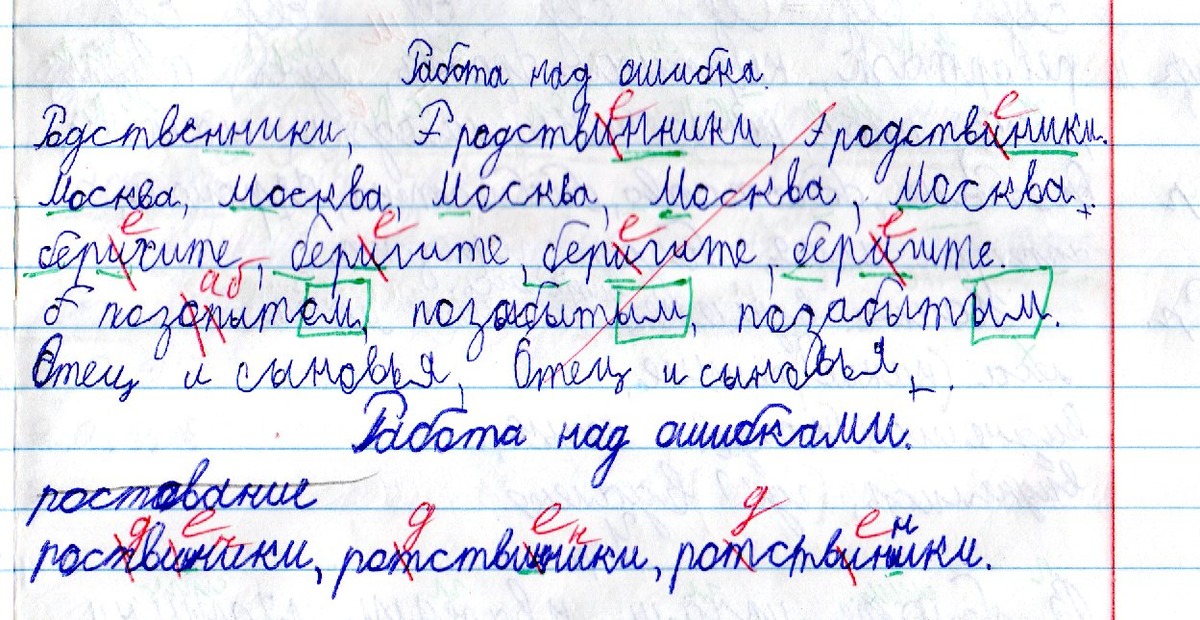 Работа над ошибка.
Родственники, родствинники, родствиники.
Москва, Москва, Москва, Москва, Москва.
берихите, беригите, беригите, беригите.
позопытом, позабытым, позабытым.
Отец и сыновья, Отец и сыновья.
Работа над ошибками.
ростование
роствиники, ротствиники, ротствинники.